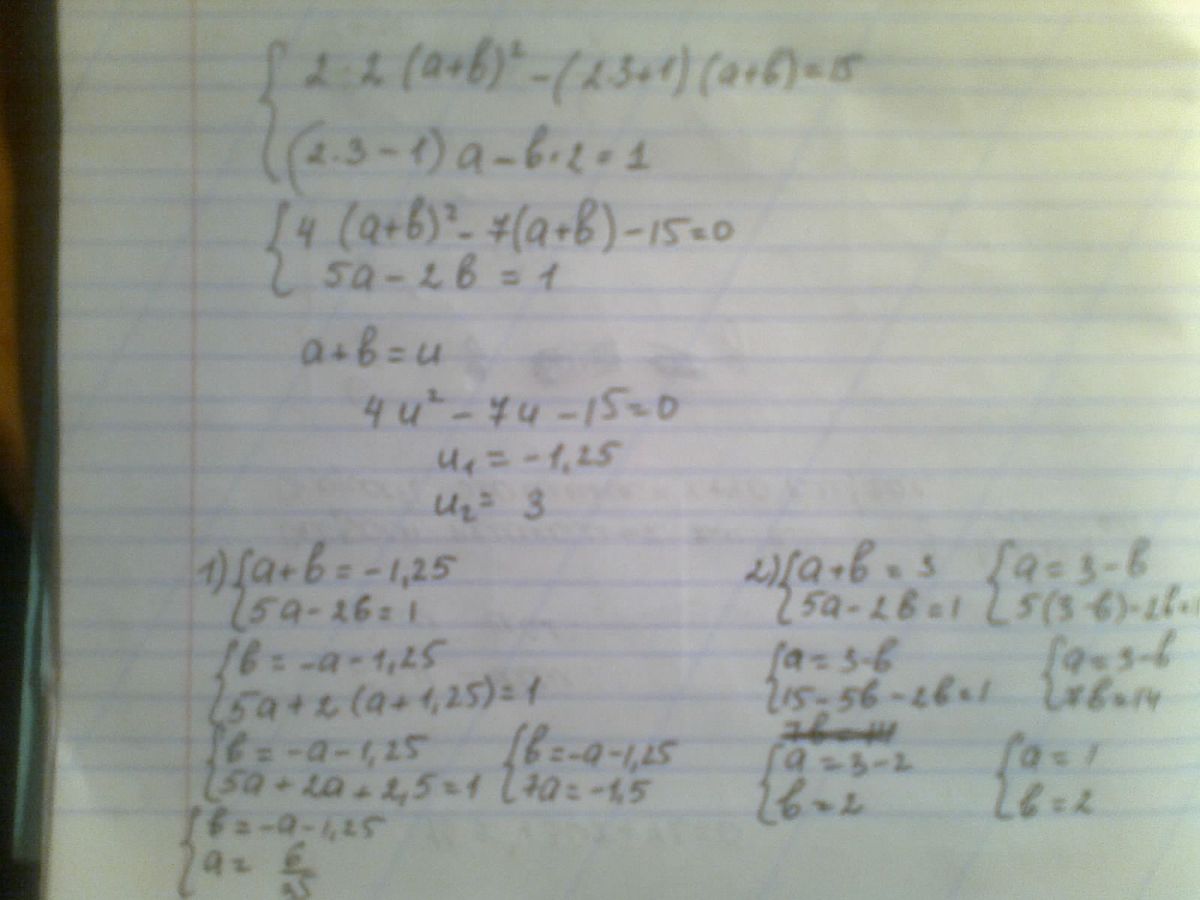 { 2·2 (a+b)² - (2·3+1) (a+b) = 15
(2·3-1) a - b·2 = 1
{ 4 (a+b)² - 7(a+b) - 15 = 0
5a - 2b = 1
a+b = u
4u² - 7u - 15 = 0
u₁ = -1,25
u₂ = 3
1) { a+b = -1,25
5a - 2b = 1
{ b = -a - 1,25
5a + 2 (a+1,25) = 1
{ b = -a - 1,25
5a + 2a + 2,5 = 1
{ b = -a - 1,25
7a = -1,5
{ b = -a - 1,25
a =
2) { a+b = 3
5a - 2b = 1
{ a = 3-b
5(3-b) - 2b =
{ a = 3-b
15 - 5b - 2b = 1
{ a = 3-b
7b = 14
{ a = 3-2
b = 2
{ a = 1
b = 2